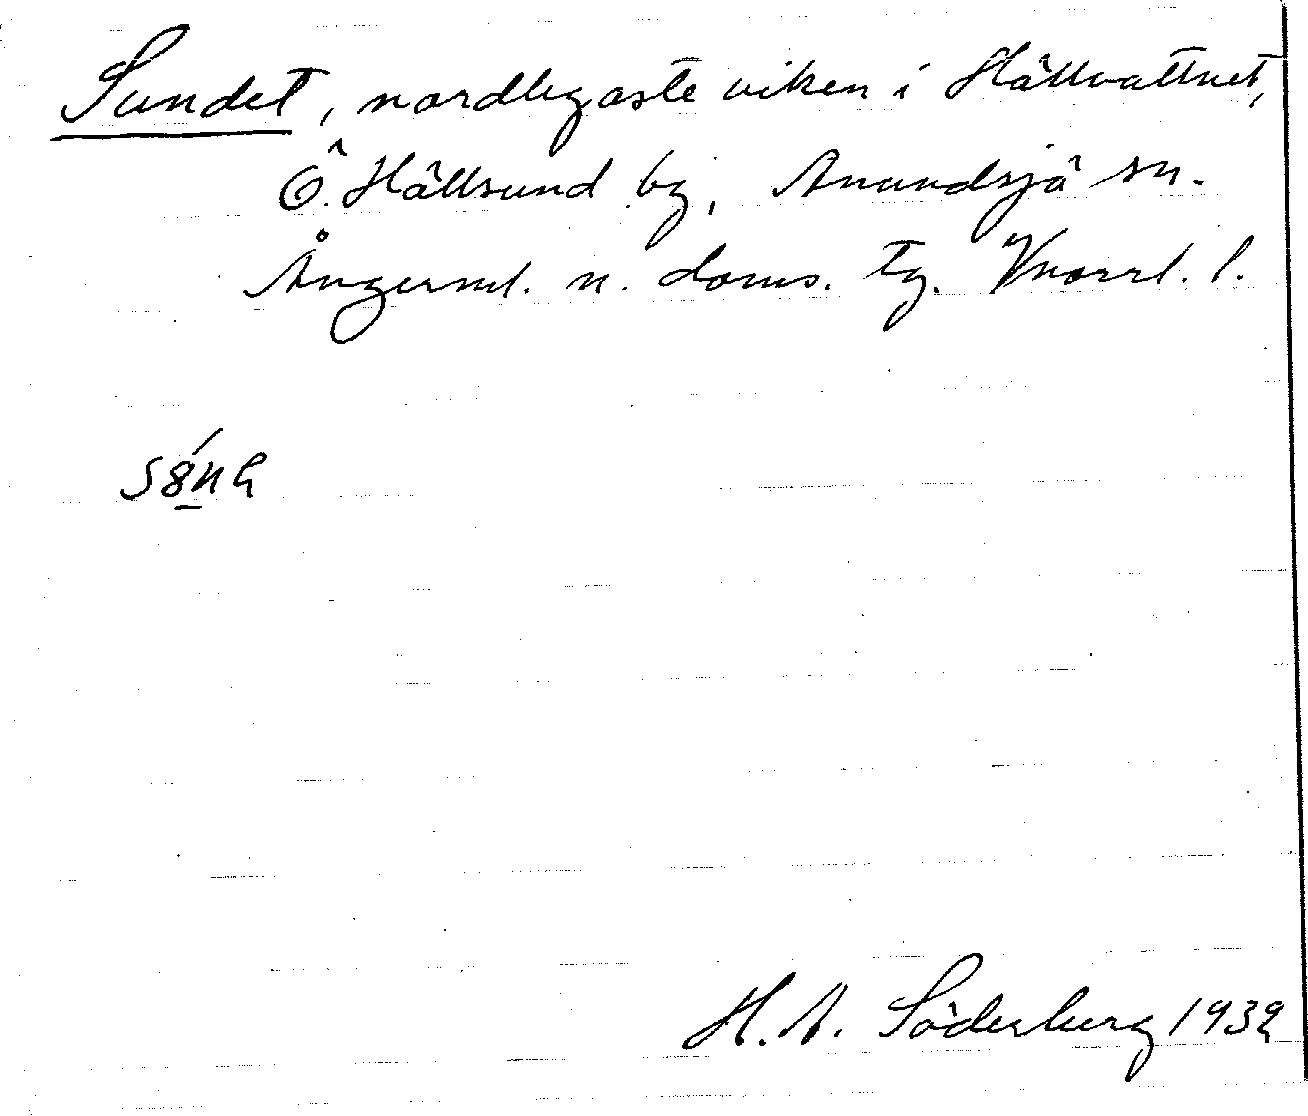 Sundet, nordligaste viken i Hällvattnet,
Ö. Hällsund by, Anundsjö sn.
Ångerml. n. doms. tg. Vnorrl. l.
H. A. Söderberg 1932